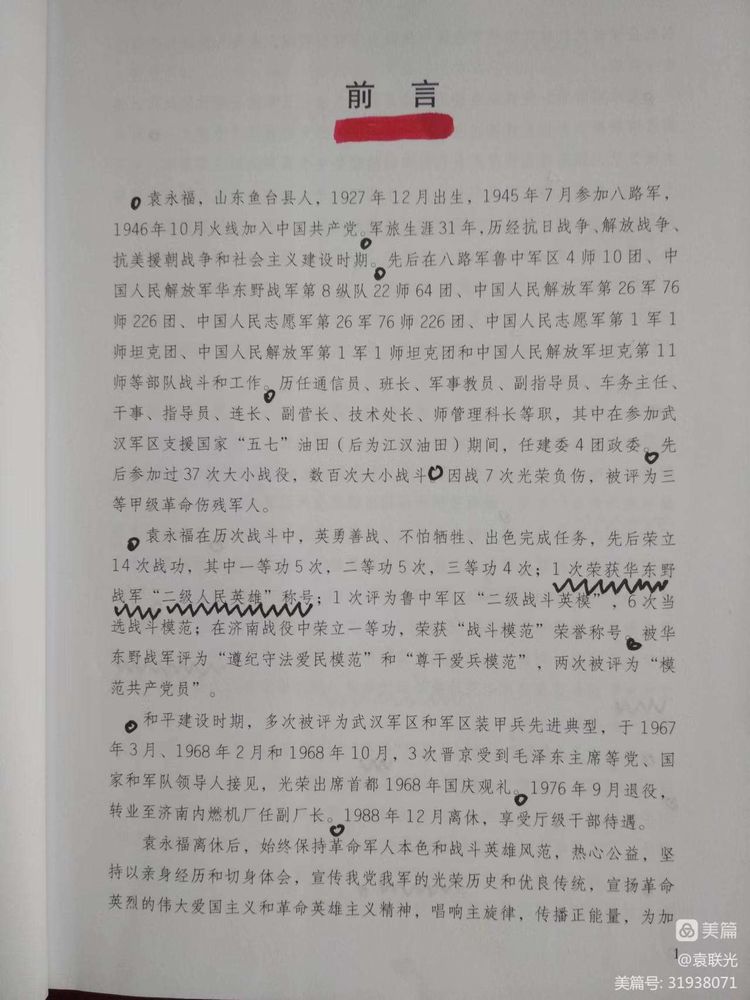 前 言
袁永福，山东鱼台县人，1927年12月出生，1945年7月参加八路军，
1946年10月火线加入中国共产党。军旅生涯31年，历经抗日战争、解放战争、
抗美援朝战争和社会主义建设时期。先后在八路军鲁中军区4师10团、中
国人民解放军华东野战军第8纵队22师64团、中国人民解放军第26军76
师226团、中国人民志愿军第26军76师226团、中国人民志愿军第1军1
师坦克团、中国人民解放军第1军1师坦克团和中国人民解放军坦克第11
师等部队战斗和工作。历任通信员、班长、军事教员、副指导员、车务主任、
干事、指导员、连长、副营长、技术处长、师管理科长等职，其中在参加武
汉军区支援国家“五七”油田（后为江汉油田）期间，任建委4团政委。先
后参加过37次大小战役，数百次大小战斗。因战7次光荣负伤，被评为三
等甲级革命伤残军人。
袁永福在历次战斗中，英勇善战、不怕牺牲、出色完成任务，先后荣立
14次战功，其中一等功5次，二等功5次，三等功4次；1次荣获华东野
战军“二级人民英雄”称号；1次评为鲁中军区“二级战斗英模”，6次当
选战斗模范；在济南战役中荣立一等功，荣获“战斗模范”荣誉称号。被华
东野战军评为“遵纪守法爱民模范”和“尊干爱兵模范”，两次被评为“模
范共产党员”。
和平建设时期，多次被评为武汉军区和军区装甲兵先进典型，于1967
年3月、1968年2月和1968年10月，3次晋京受到毛泽东主席等党、国
家和军队领导人接见，光荣出席首都1968年国庆观礼。1976年9月退役，
转业至济南内燃机厂任副厂长。1988年12月离休，享受厅级干部待遇。
袁永福离休后，始终保持革命军人本色和战斗英雄风范，热心公益，坚
持以亲身经历和切身体会，宣传我党我军的光荣历史和优良传统，宣扬革命
英烈的伟大爱国主义和革命英雄主义精神，唱响主旋律，传播正能量，为加
1
美篇
@袁联光
美篇号: 31938071